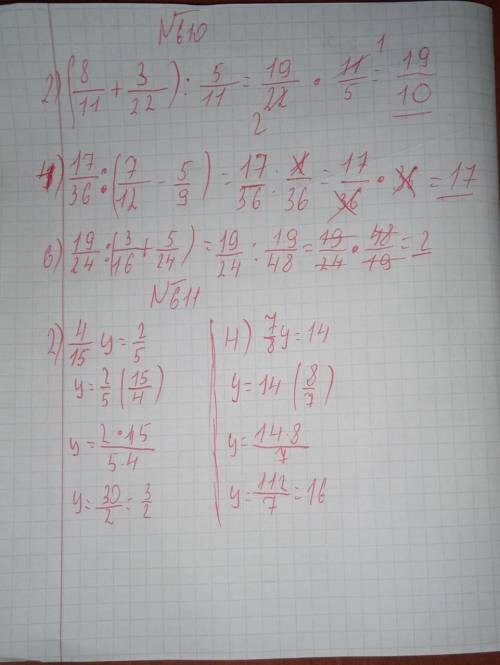 №610
2) (8/11 + 3/22) : 5/11 = 19/22 • 11/5 = 19/10
1
2
4) 17/36 : (7/12 - 5/9) = 17/36 : 1/36 = 17/36 • 36 = 17
6) 19/24 : (3/16 + 5/24) = 19/24 : 19/48 = 19/24 • 48/19 = 2
№611
2) 4/15 y = 2/5
y = 2/5 (15/4)
y = 2•15/5•4
y = 30/2 = 3/2
4) 7/8 y = 14
y = 14 (8/7)
y = 14•8/7
y = 112/7 = 16